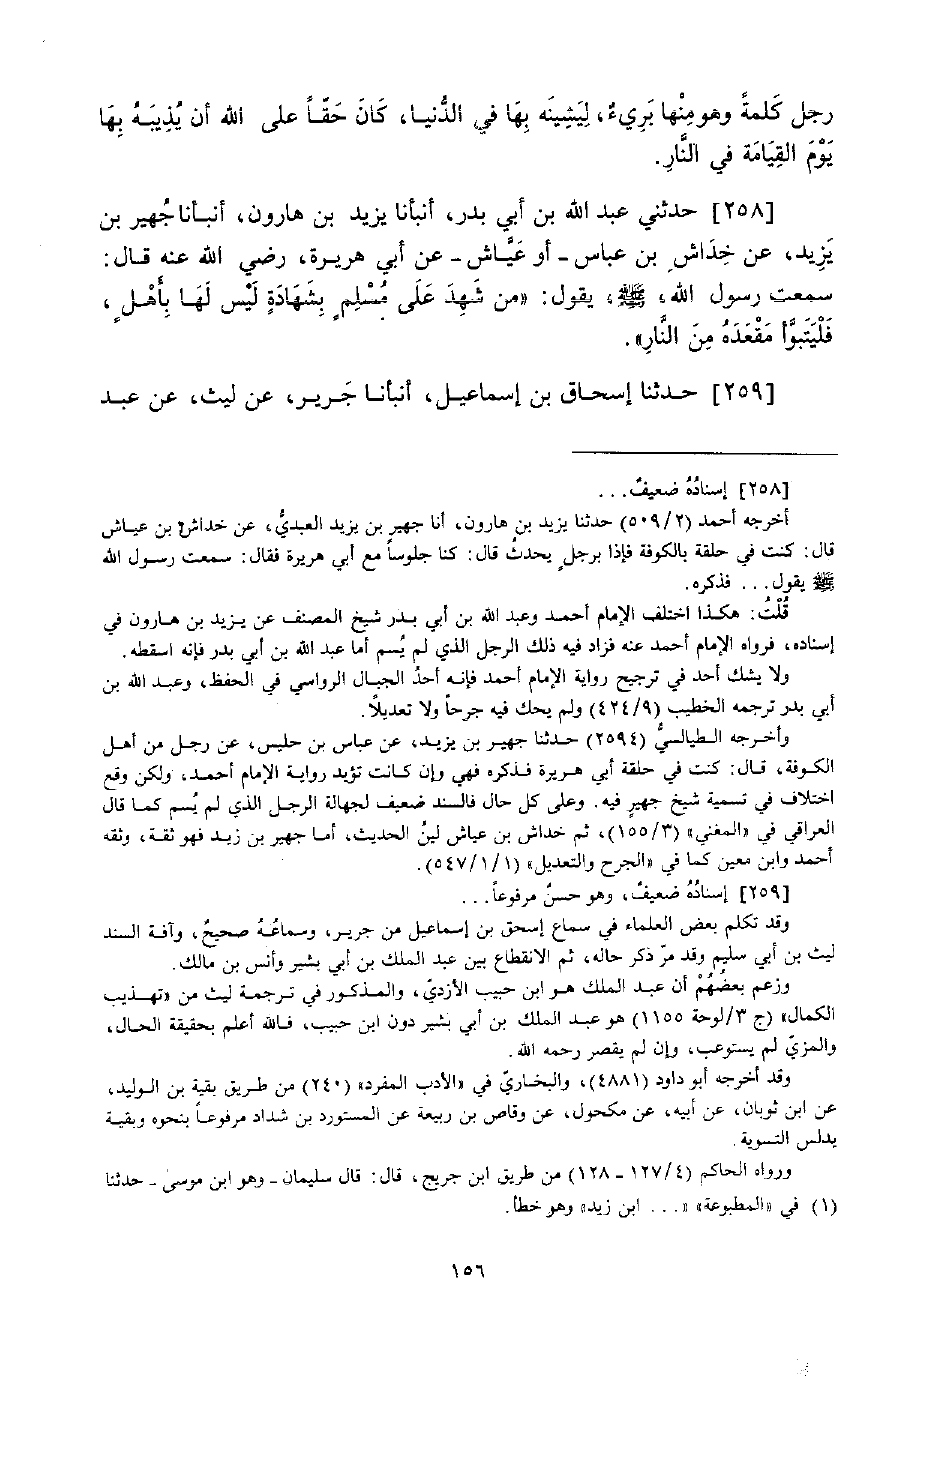 رجل كَلمةً وهو مِنْها بَرِيءٌ، لِيَشِينَه بِهَا في الدُّنيا، كَانَ حَقّاً على الله أن يُذِيبَهُ بِهَا
يَوْمَ القِيَامَة في النَّارِ.
[٢٥٨] حدثني عبد الله بن أبي بدر، أنبأنا يزيد بن هارون، أنبأنا جُهير بن
يَزِيد، عن خِدَاشِ بن عباس - أو عَيَّاش - عن أبي هريرة، رضي الله عنه قال:
سمعت رسول الله، ﷺ، يقول: «من شَهِدَ عَلَى مُسْلِمٍ بِشَهَادَةٍ لَيْس لَهَا بِأَهْلٍ،
فَلْيَتَبوَّأ مَقْعَدَهُ مِنَ النَّارِ».
[٢٥٩] حدثنا إسحاق بن إسماعيل، أنبأنا جَرير، عن ليث، عن عبد
[٢٥٨] إسنادُهُ ضعيفٌ...
أخرجه أحمد (٥٠٩/٢) حدثنا يزيد بن هارون، أنا جهير بن يزيد العبديُّ، عن خداش بن عياش
قال: كنت في حلقة بالكوفة فإذا برجلٍ يحدثُ قال: كنا جلوساً مع أبي هريرة فقال: سمعت رسول الله
ﷺ يقول... فذكره.
قُلْتُ: هكذا اختلف الإمام أحمد وعبد الله بن أبي بدر شيخ المصنف عن يزيد بن هارون في
إسناده، فرواه الإمام أحمد عنه فزاد فيه ذلك الرجل الذي لم يُسم أما عبد الله بن أبي بدر فإنه اسقطه.
ولا يشك أحد في ترجيح رواية الإمام أحمد فإنه أحدُ الجبال الرواسي في الحفظ، وعبد الله بن
أبي بدر ترجمه الخطيب (٤٢٤/٩) ولم يحك فيه جرحاً ولا تعديلاً.
وأخرجه الطيالسيُّ (٢٥٩٤) حدثنا جهير بن يزيد، عن عباس بن حليس، عن رجل من أهل
الكوفة، قال: كنت في حلقة أبي هريرة فذكره فهي وإن كانت تؤيد رواية الإمام أحمد، ولكن وقع
اختلاف في تسمية شيخ جهيرٍ فيه. وعلى كل حال فالسند ضعيف لجهالة الرجل الذي لم يُسم كما قال
العراقي في «المغني» (١٥٥/٣)، ثم خداش بن عياش لينُ الحديث، أما جهير بن زيد فهو ثقة، وثقه
أحمد وابن معين كما في «الجرح والتعديل» (٥٤٧/١/١).
[٢٥٩] إسنادُهُ ضعيفٌ، وهو حسنٌ مرفوعاً...
وقد تكلم بعض العلماء في سماع إسحق بن إسماعيل من جرير، وسماعُهُ صحيحٌ، وآفة السند
ليث بن أبي سليمٍ وقد مرّ ذكر حاله، ثم الانقطاع بين عبد الملك بن أبي بشير وأنس بن مالك.
وزعم بعضُهُمْ أن عبد الملك هو ابن حبيب الأزديّ، والمذكور في ترجمة ليث من «تهذيب
الكمال» (ج ٣/لوحة ١١٥٥) هو عبد الملك بن أبي بشير دون ابن حبيب، فالله أعلم بحقيقة الحال،
والمزيّ لم يستوعب، وإن لم يقصر رحمه الله.
وقد أخرجه أبو داود (٤٨٨١)، والبخاريّ في «الأدب المفرد» (٢٤٠) من طريق بقية بن الوليد،
عن ابن ثوبان، عن أبيه، عن مكحول، عن وقاص بن ربيعة عن المستورد بن شداد مرفوعاً بنحوه وبقية
يدلس التسوية.
ورواه الحاكم (١٢٧/٤ - ١٢٨) من طريق ابن جريج، قال: قال سليمان - وهو ابن موسى - حدثنا
(١) في «المطبوعة» «... ابن زيد» وهو خطأ.
١٥٦